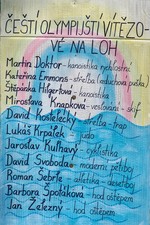 ČEŠTÍ OLYMPIJŠTÍ VÍTĚZO-
VÉ NA LOH
Martin Doktor - kanoistika rychlostní
Kateřina Emmons - střelba (vzduchová puška)
Štěpánka Hilgertová - kanoistika
Miroslava Knapková - veslování - skif
David Kostelecký - střelba - trap
Lukáš Krpálek - judo
Jaroslav Kulhavý - cyklistika
David Svoboda - moderní pětiboj
Roman Šebrle - atletika - desetiboj
Barbora Špotáková - hod oštěpem
Jan Železný - hod oštěpem